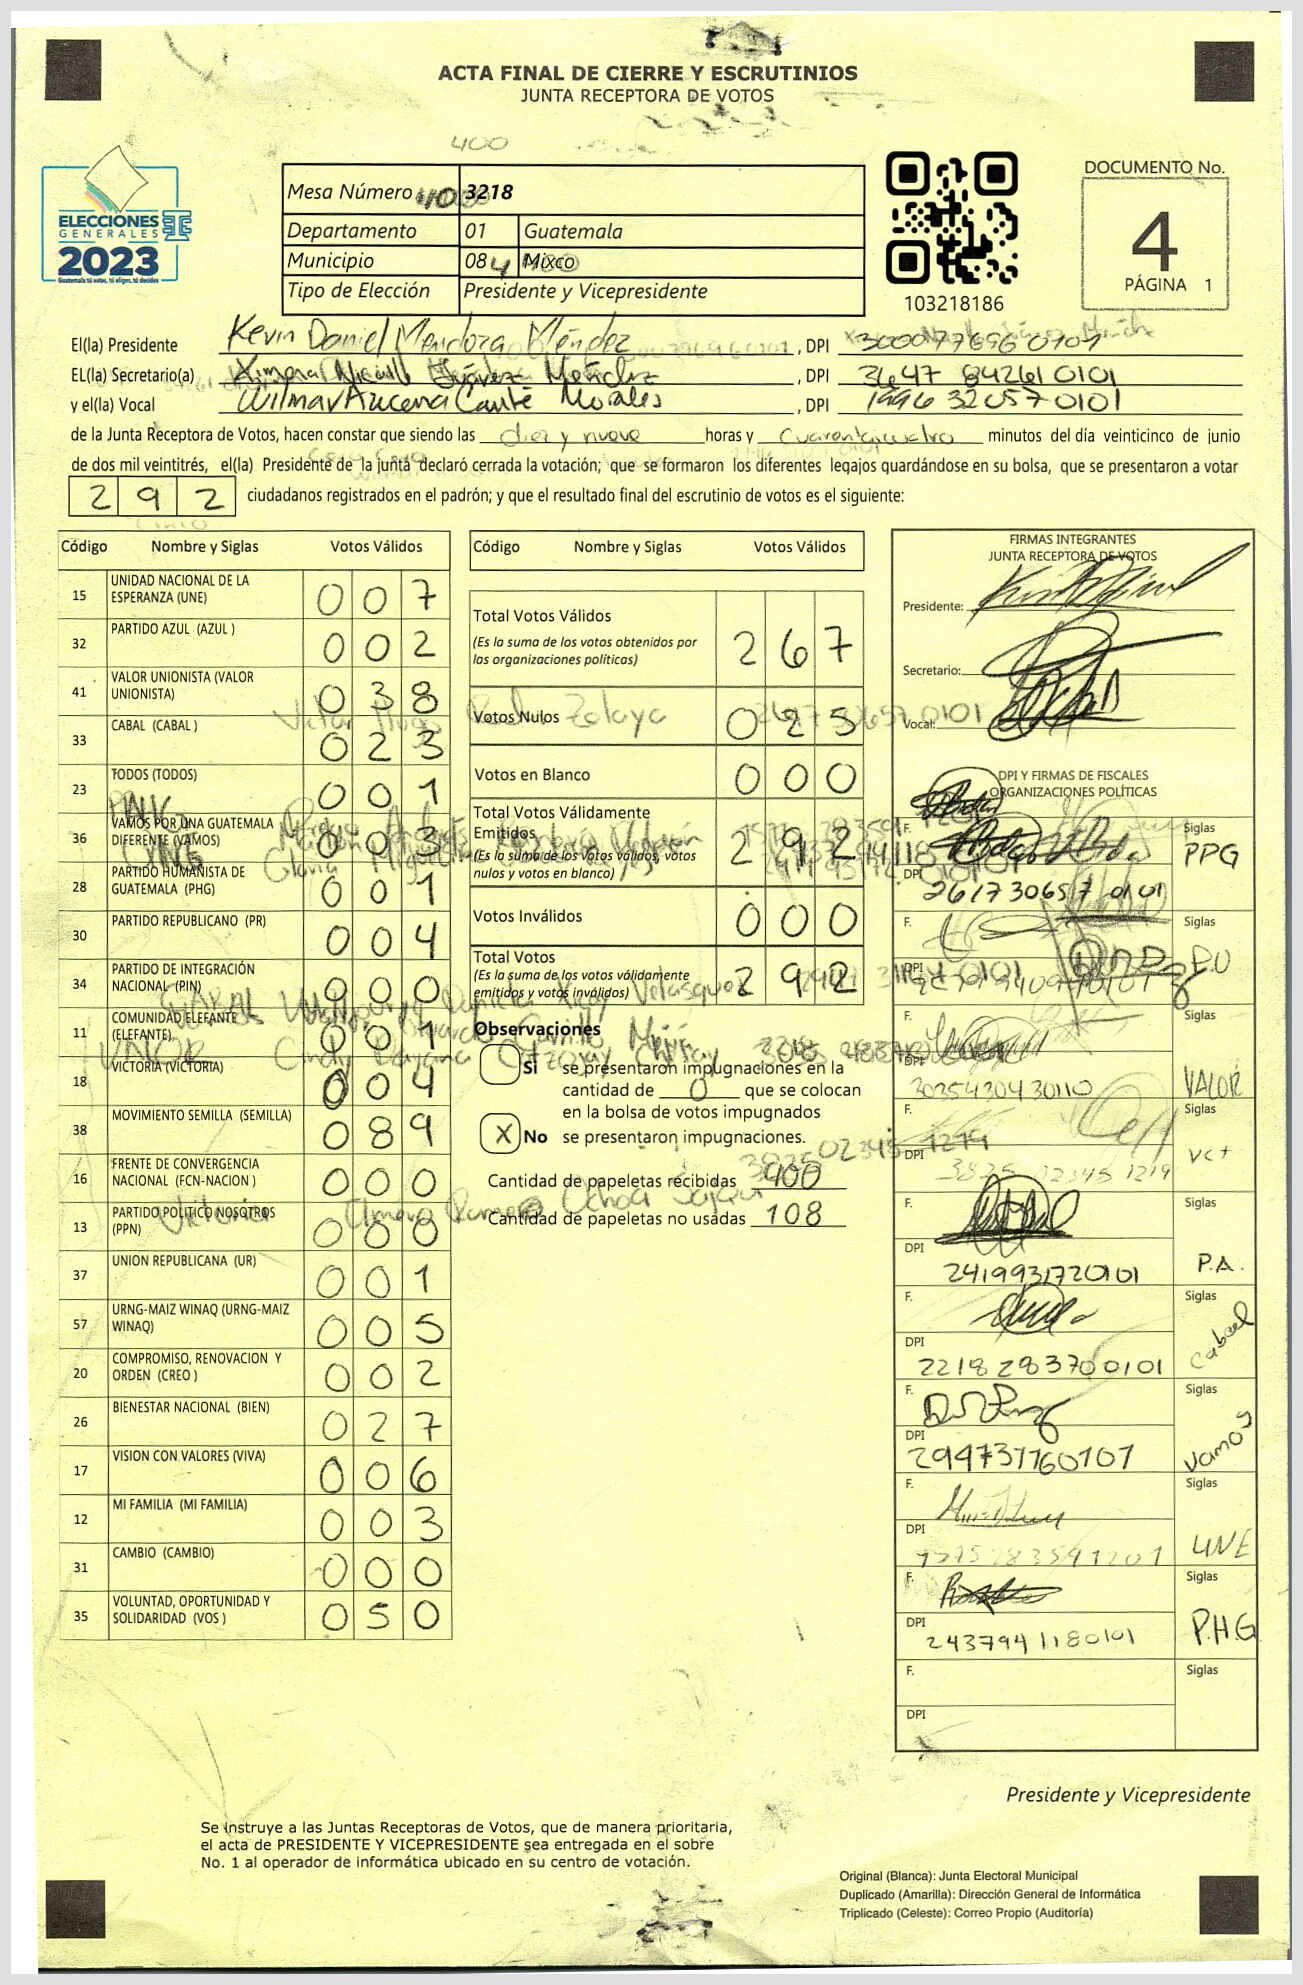 ACTA FINAL DE CIERRE Y ESCRUTINIOS
JUNTA RECEPTORA DE VOTOS
400
ELECCIONES
GENERALES
2023
Guatemala tú votas, tú eliges, tú decides
Mesa Número 3218
Departamento 01 Guatemala
Municipio 08 Mixco
Tipo de Elección Presidente y Vicepresidente
103218186
DOCUMENTO No.
4
PÁGINA 1
El(la) Presidente Kevin Daniel Mendoza Méndez , DPI
EL(la) Secretario(a) , DPI 3647 84261 0101
y el(la) Vocal Wilmar Morales , DPI 1996 32057 0101
de la Junta Receptora de Votos, hacen constar que siendo las diez y nueve horas y cuarenta y cuatro minutos del día veinticinco de junio
de dos mil veintitrés, el(la) Presidente de la junta declaró cerrada la votación; que se formaron los diferentes legajos quardándose en su bolsa, que se presentaron a votar
292 ciudadanos registrados en el padrón; y que el resultado final del escrutinio de votos es el siguiente:
Código Nombre y Siglas Votos Válidos
15 UNIDAD NACIONAL DE LA ESPERANZA (UNE) 007
32 PARTIDO AZUL (AZUL ) 002
41 VALOR UNIONISTA (VALOR UNIONISTA) 038
33 CABAL (CABAL ) 023
23 TODOS (TODOS) 001
36 VAMOS POR UNA GUATEMALA DIFERENTE (VAMOS) 003
28 PARTIDO HUMANISTA DE GUATEMALA (PHG) 001
30 PARTIDO REPUBLICANO (PR) 004
34 PARTIDO DE INTEGRACIÓN NACIONAL (PIN) 000
11 COMUNIDAD ELEFANTE (ELEFANTE) 001
18 VICTORIA (VICTORIA) 004
38 MOVIMIENTO SEMILLA (SEMILLA) 089
16 FRENTE DE CONVERGENCIA NACIONAL (FCN-NACION ) 000
13 PARTIDO POLITICO NOSOTROS (PPN) 000
37 UNION REPUBLICANA (UR) 001
57 URNG-MAIZ WINAQ (URNG-MAIZ WINAQ) 005
20 COMPROMISO, RENOVACION Y ORDEN (CREO ) 002
26 BIENESTAR NACIONAL (BIEN) 027
17 VISION CON VALORES (VIVA) 006
12 MI FAMILIA (MI FAMILIA) 003
31 CAMBIO (CAMBIO) 000
35 VOLUNTAD, OPORTUNIDAD Y SOLIDARIDAD (VOS ) 050
Código Nombre y Siglas Votos Válidos
Total Votos Válidos 267
(Es la suma de los votos obtenidos por
las organizaciones políticas)
Votos Nulos 025
Votos en Blanco 000
Total Votos Válidamente
Emitidos 292
(Es la suma de los votos válidos, votos
nulos y votos en blanco)
Votos Inválidos 000
Total Votos 292
(Es la suma de los votos válidamente
emitidos y votos inválidos)
Observaciones
Si se presentaron impugnaciones en la
cantidad de 0 que se colocan
en la bolsa de votos impugnados
X No se presentaron impugnaciones.
Cantidad de papeletas recibidas 400
Cantidad de papeletas no usadas 108
FIRMAS INTEGRANTES
JUNTA RECEPTORA DE VOTOS
Presidente:
Secretario:
Vocal:
DPI Y FIRMAS DE FISCALES
ORGANIZACIONES POLÍTICAS
F. Siglas PPG
DPI 2617 30657 0101
F. Siglas P.U
DPI
F. Siglas VALOR
DPI 3035430430110
F. Siglas VCT
DPI 3825 02345 1219
F. Siglas P.A.
DPI 2419931720101
F. Siglas Cabal
DPI 2218 28370 0101
F. Siglas Vamos
DPI 2994737760101
F. Siglas UNE
DPI
F. Siglas P.H.G
DPI 243794 1180101
F. Siglas
DPI
Presidente y Vicepresidente
Se instruye a las Juntas Receptoras de Votos, que de manera prioritaria,
el acta de PRESIDENTE Y VICEPRESIDENTE sea entregada en el sobre
No. 1 al operador de informática ubicado en su centro de votación.
Original (Blanca): Junta Electoral Municipal
Duplicado (Amarilla): Dirección General de Informática
Triplicado (Celeste): Correo Propio (Auditoría)